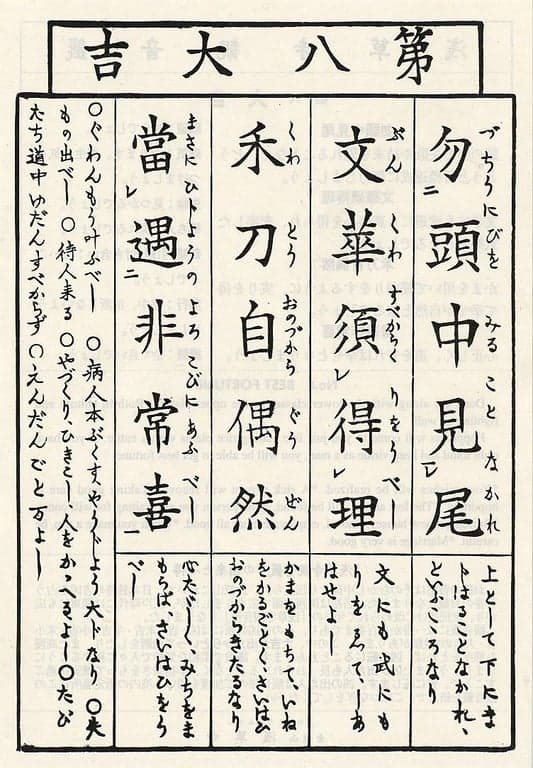 第八大吉
づちうにびを みること なかれ
勿二頭中見レ尾
上として下にま
じはることなかれ、
といふこゝろなり
ぶん くわ すべからく りをうべ
文華須レ得レ理
文にも武にも
りをゑて、しあ
はせよし
くわ とう おのづから ぐう ぜん
禾刀自偶然
かまをもちていね
をかるごとく、さいはひ
おのづからきたるなり
まさに ひじようの よろこびにあふ べ
當レ遇二非常喜一
心たゞしく、みちをま
もらば、さいはひをう
べし
〇ぐわんもう叶ふべし 〇病人本ぶくす、 大じなり 〇失
もの出べし 〇待人来る 〇やづくり、ひきこし、人をかゝへるよし〇たび
たち道中ゆだんすべからず 〇えんだんごと万よし